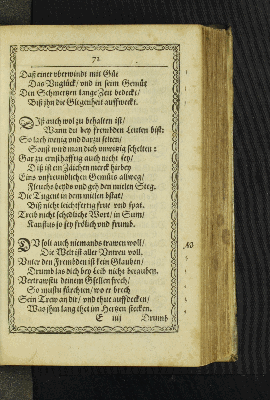 72
Daß einer vberwindt mit Güt
Das Vnglück/ vnd in seim Gemüt
Den Schmertzen lange Zeit bedeckt/
Biß jhn die Glegenheit auffweckt.
Diß auch wol zu behalten ist/
Wann du bey frembden Leuten bist:
So lach wenig vnd darzu selten/
Sonst wird man dich vnwitzig schelten:
Gar zu ernsthafftig auch nicht sey/
Diß ist ein Zeichen merck hierbey
Eins vnfreundlichen Gemüts allweg/
Fleuchs beyds vnd geh den mitlen Steg.
Die Tugent in dem mitlen bstat/
Biß nicht leichtfertig frue vnd spat.
Treib nicht schedliche Wort/ in Sum/
Kanstus so sey frölich vnd frumb.
DV solt auch niemands trawen woll/
Die Welt ist aller Vntrew voll.
Vnter den Frembden ist kein Glauben/
Drumb las dich bey Leib nicht betauben.
Vertrawstu deinem Gsellen frech/
So mustu fürchten/ wo er brech
Sein Trew an dir/ vnd thue auffdecken/
Was jhm lang thet im Hertzen stecken.
E iiij Drumb